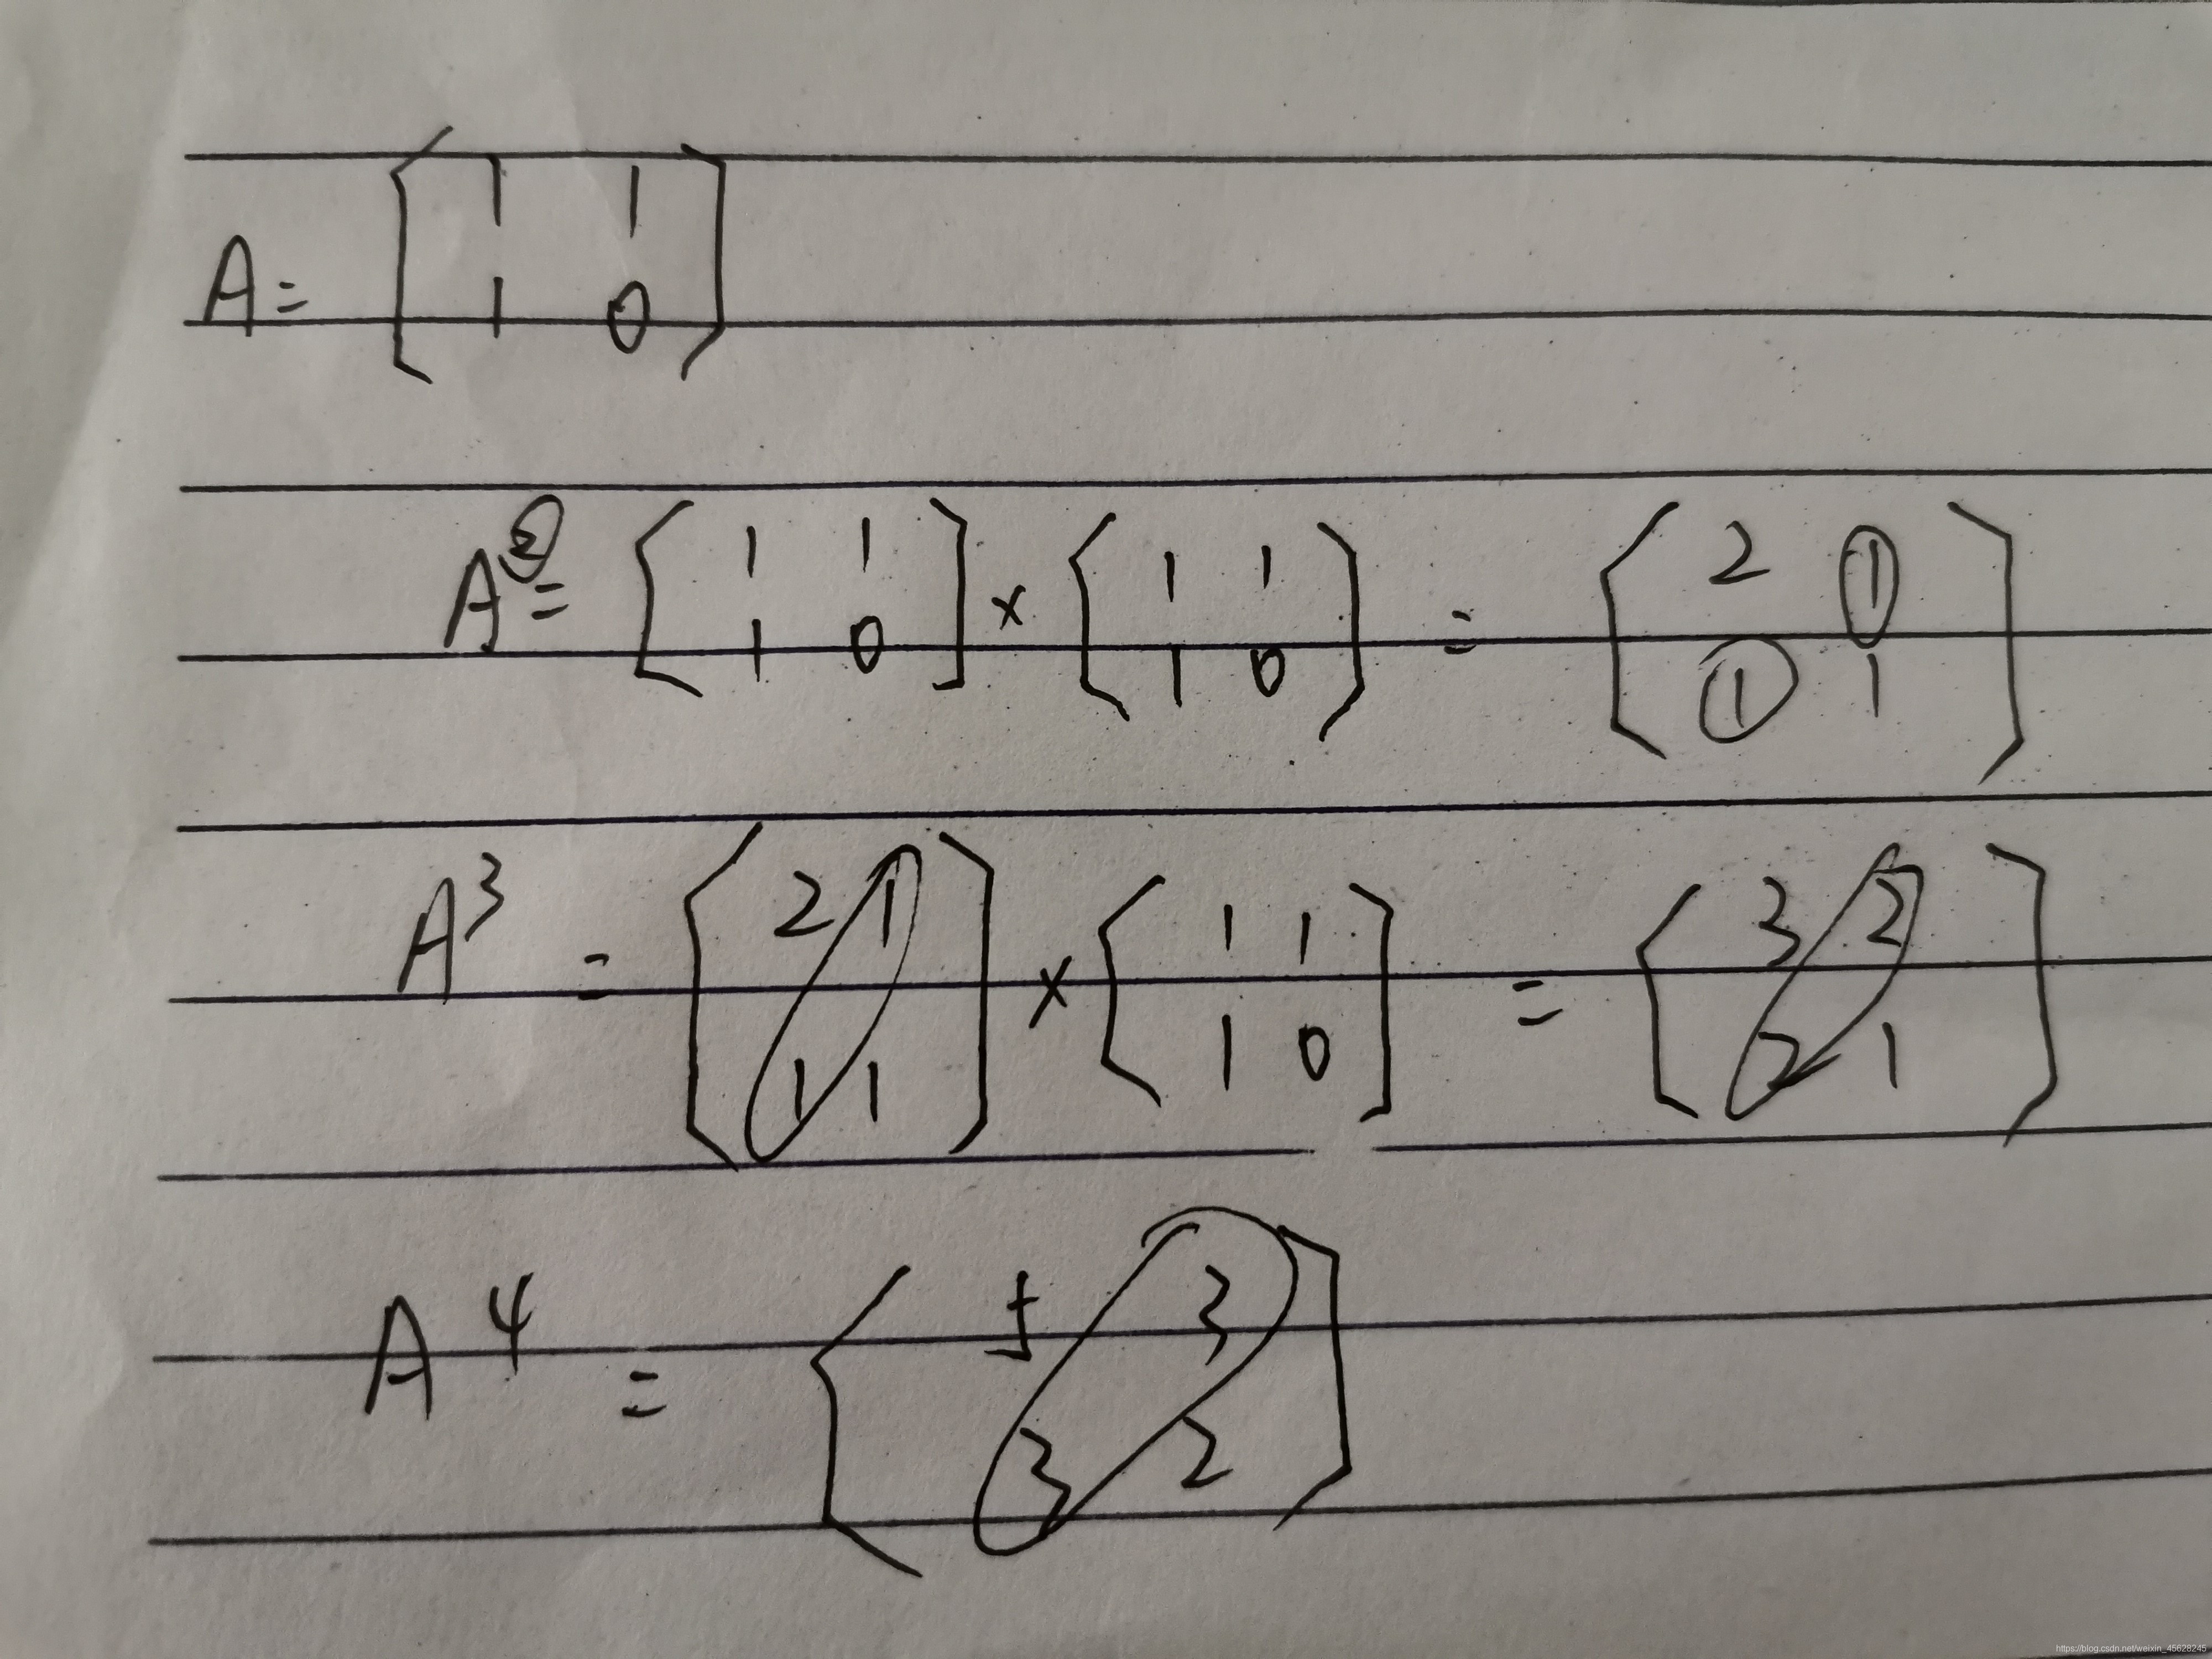 A = [1 1
1 0]
A² = [1 1
1 0] × [1 1
1 0] = [2 1
1 1]
A³ = [2 1
1 1] × [1 1
1 0] = [3 2
2 1]
A⁴ = [5 3
3 2]
https://blog.csdn.net/weixin_45628245